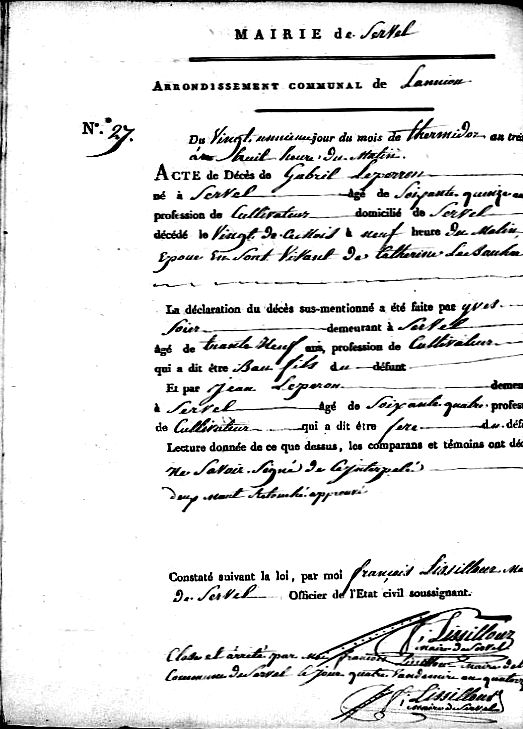 MAIRIE de Servel
ARRONDISSEMENT COMMUNAL de Lannion
N.° 27.
Du Vingt unieme jour du mois de thermidor an trei
à huit heure du Matin.
ACTE de Décès de Gabril Leperron
né à Servel âgé de Soixante quinze an
profession de Cultivateur domicilié de Servel
décédé le Vingt de ce Mois à neuf heure du Matin
Epoux En Sont Vivant de Catherine
La déclaration du décès sus-mentionné a été faite par yves
demeurant à Servel
âgé de trante Neuf ans, profession de Cultivateur
qui a dit être Bau fils du défunt
Et par Jean Leperon demeu
à Servel âgé de Soixante quatre profess
de Cultivateur qui a dit être frere du défu
Lecture donnée de ce que dessus, les comparans et témoins ont déc
Ne Savoir Signé de
deux Maut approuvé
Constaté suivant la loi, par moi françois Lissillour Ma
de Servel Officier de l'Etat civil soussignant.
f: Lissillour
Maire de Servel
Clos et arrété par Moi françois Lissillour Maire de la
Commune de Servel le jour quatre Vandemire an quatorz
f: Lissillour
Maire de Servel